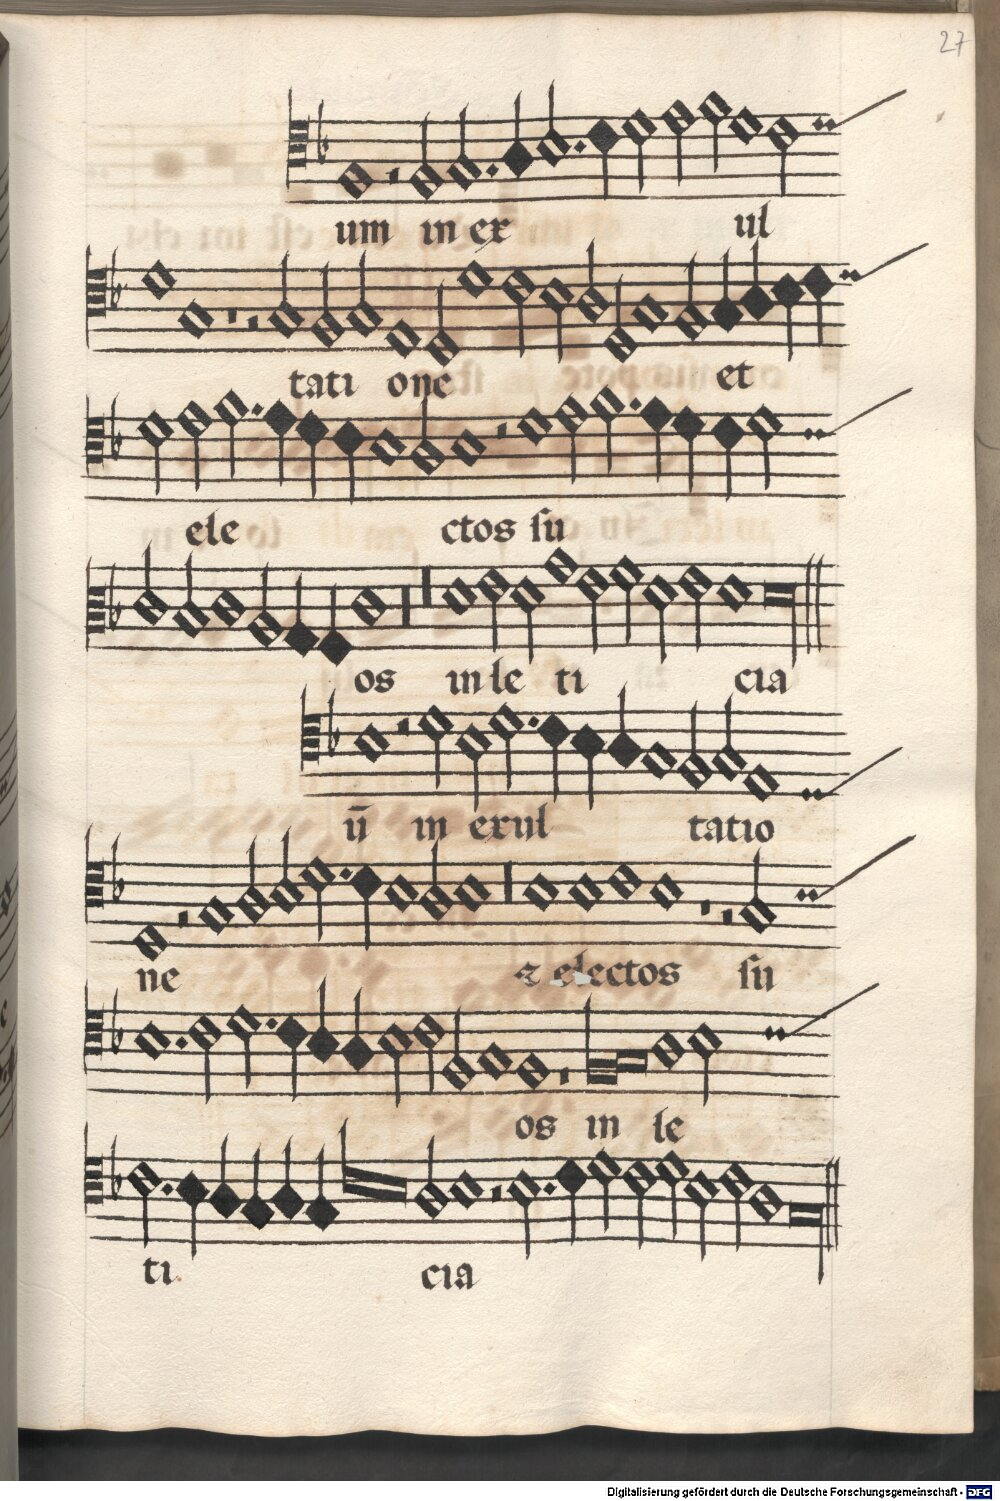 27
um in ex ul
tati one et
ele ctos su
os in le ti cia
ū in exul tatio
ne & electos su
os in le
ti cia
Digitalisierung gefördert durch die Deutsche Forschungsgemeinschaft - DFG